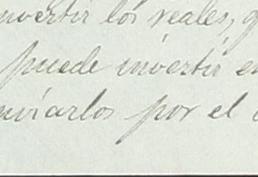 nvertir los reales, q
puede invertir en
nviarlos por el c